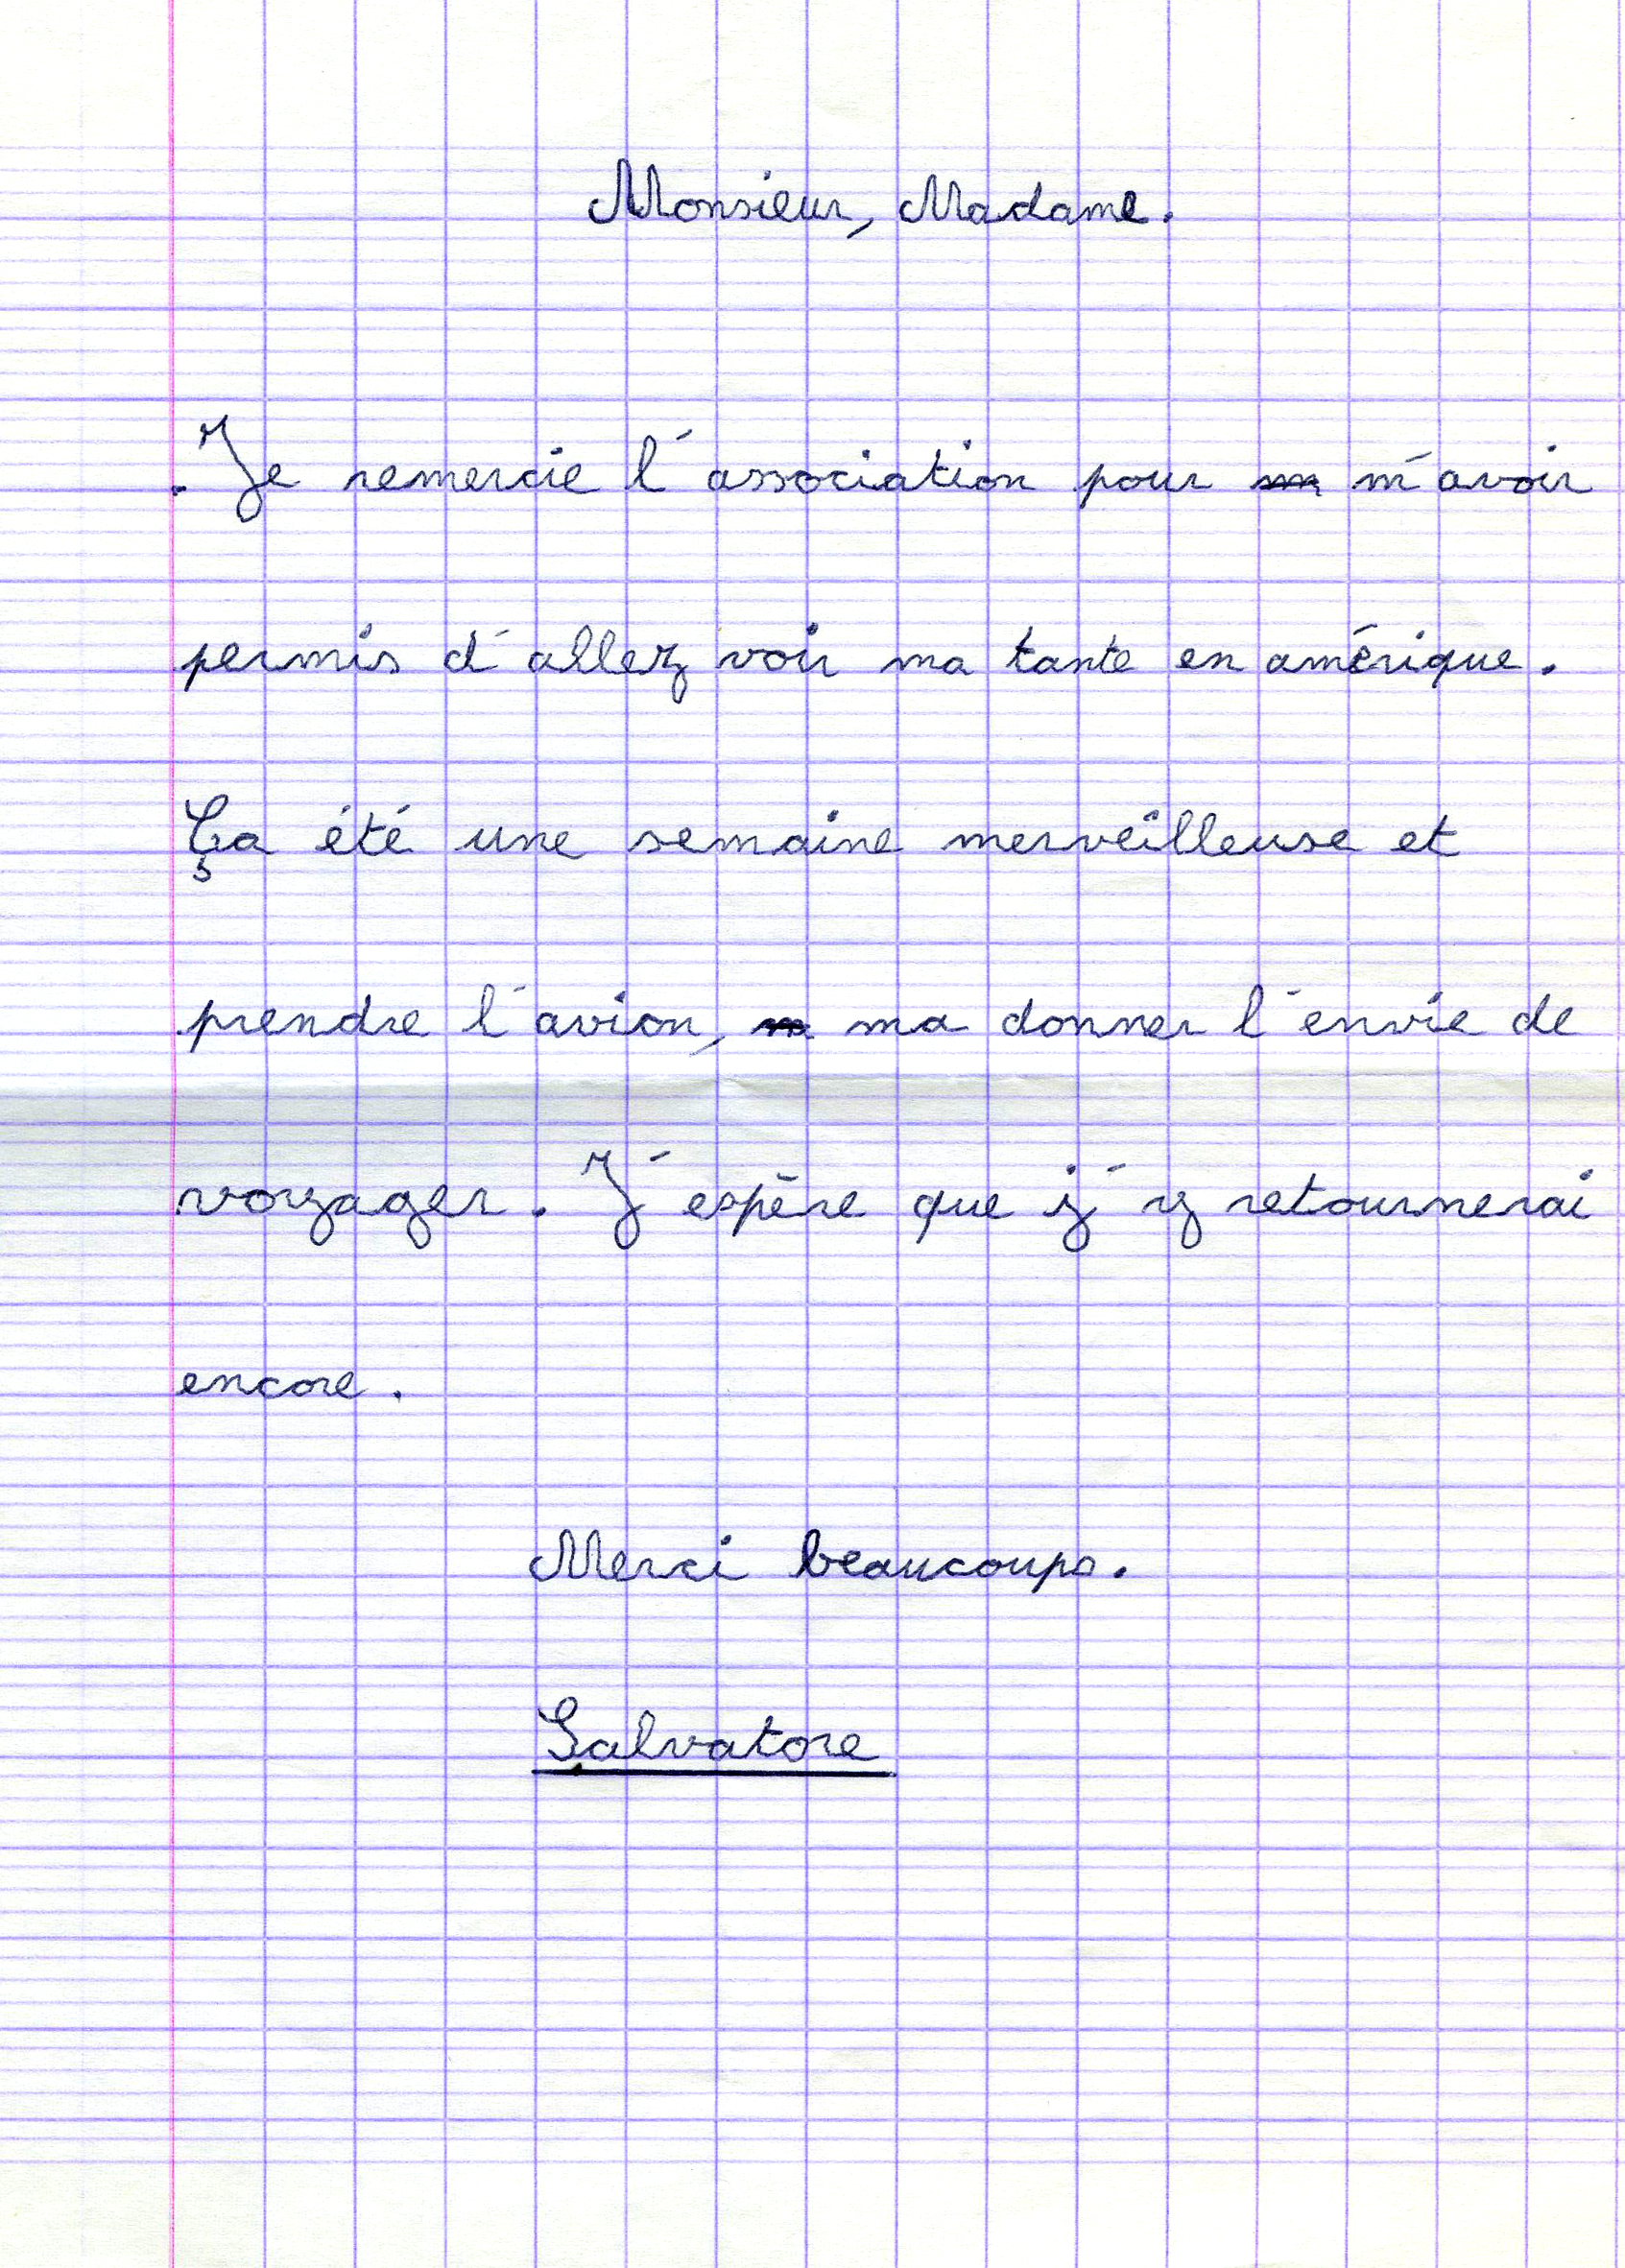 Monsieur, Madame.
. Je remercie l'association pour m'avoir
permis d'allez voir ma tante en amérique.
Ça été une semaine merveilleuse et
prendre l'avion, ma donner l'envie de
voyager. J'espère que j'y retournerai
encore.
Merci beaucoups.
Salvatore